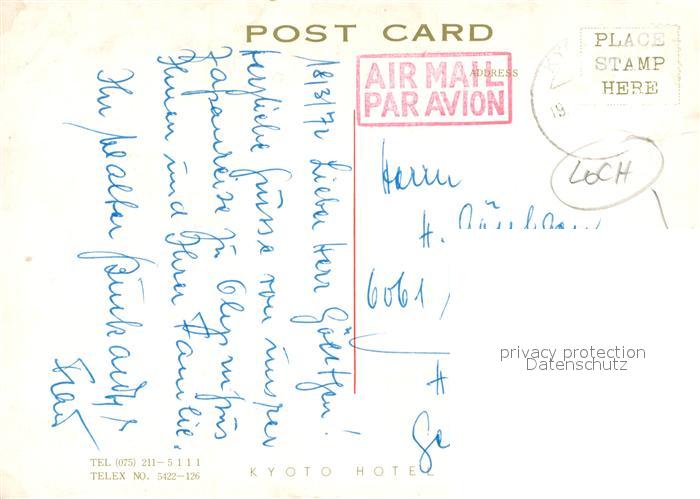 POST CARD
AIR MAIL
PAR AVION
ADDRESS
PLACE
STAMP
HERE
19
LOCH
18/3/72 Lieber Herr
herzliche Grüsse von unsrer
Japanreise zu Olympus
Ihnen und Ihrer Familie.
Ihr Walter Burkardt
Herrn
H.
6061
H
privacy protection
Datenschutz
TEL (075) 211-5111
TELEX NO. 5422-126
KYOTO HOTEL